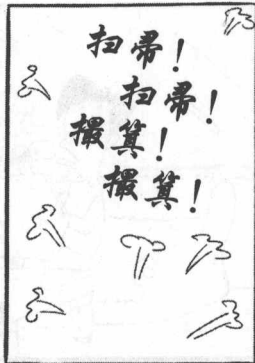 扫帚！
扫帚！
撮箕！
撮箕！